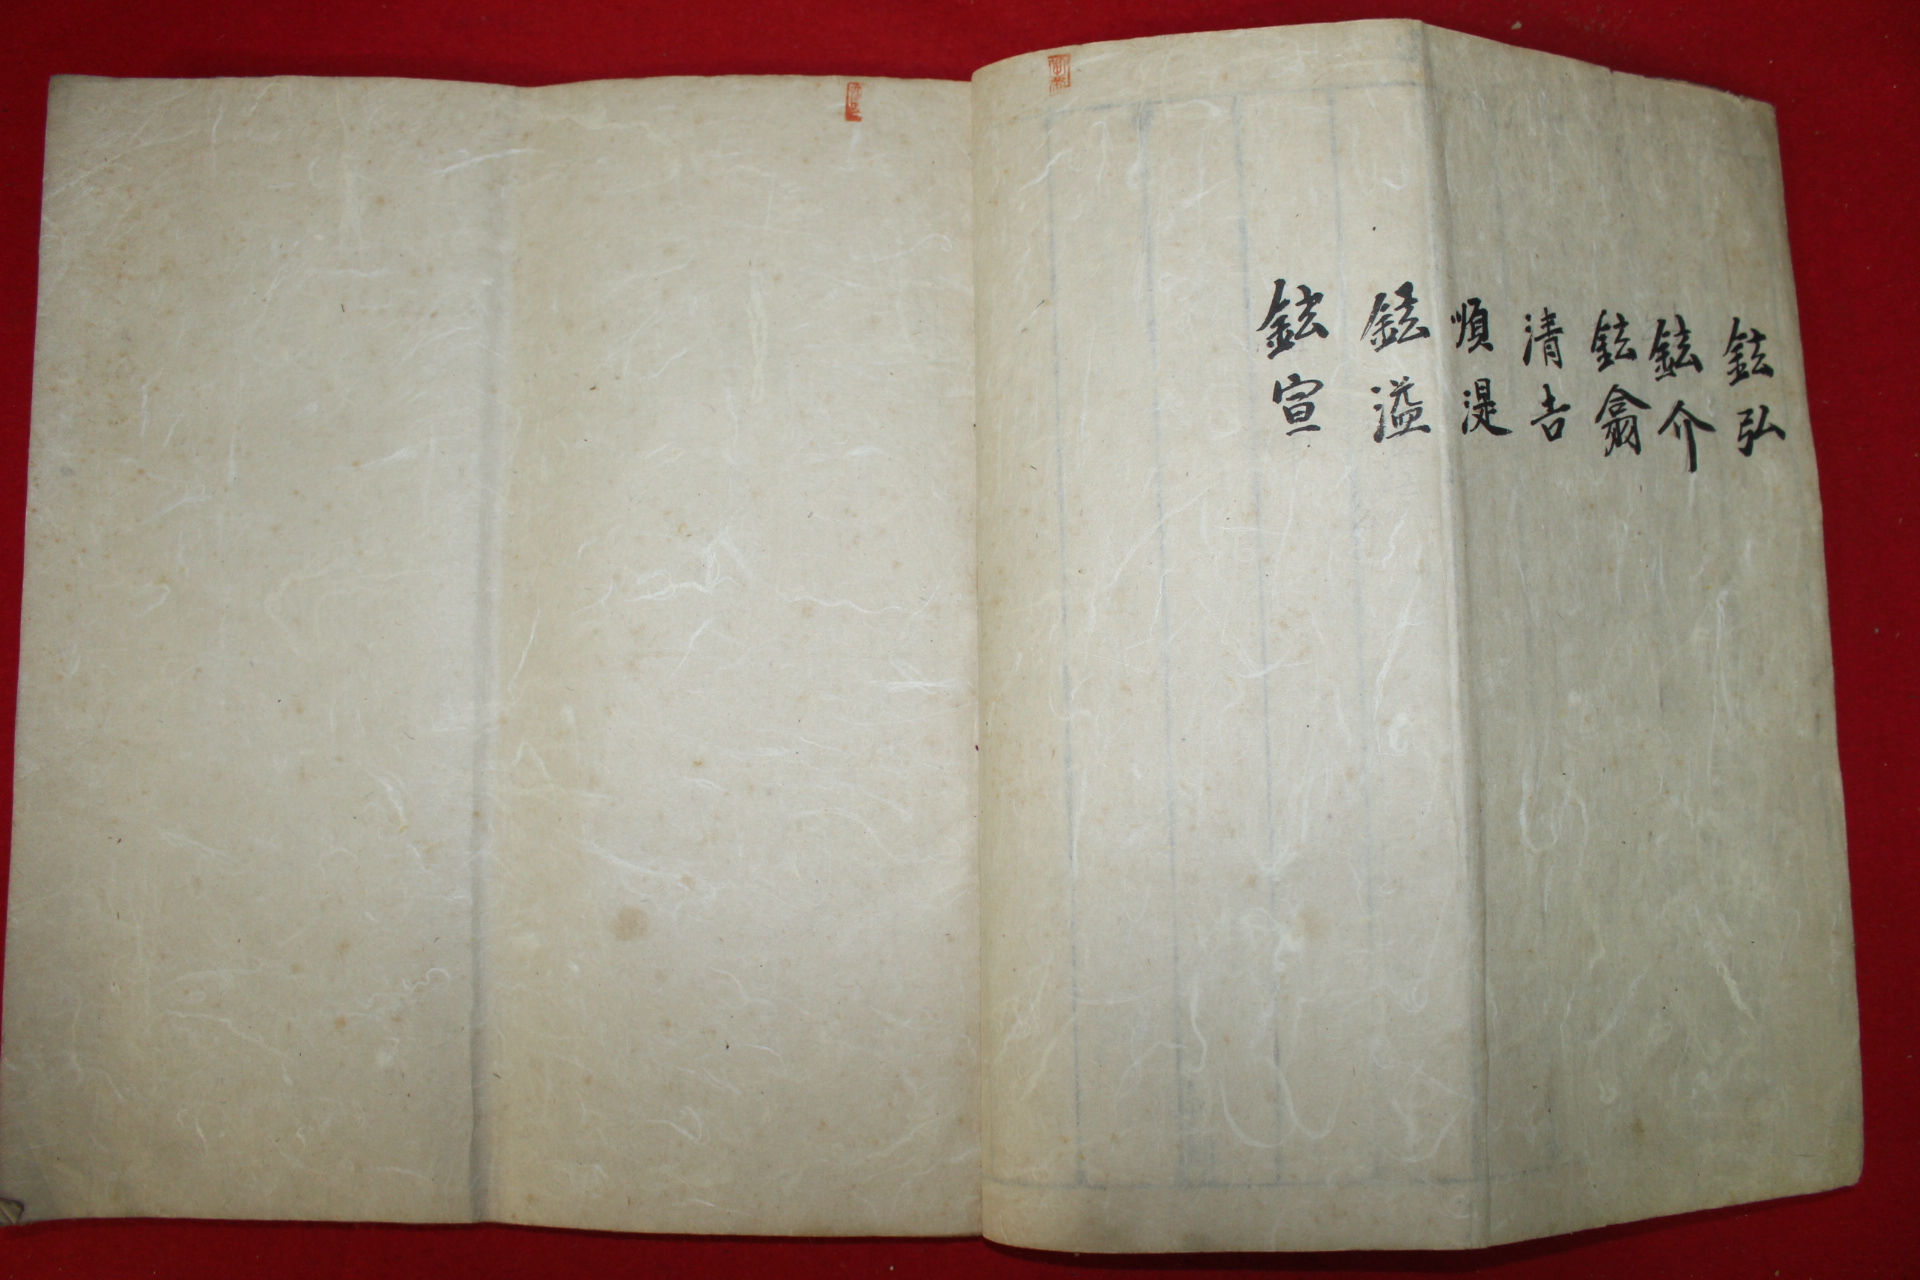 鉉弘
鉉介
鉉翕
清吉
順湜
鉉溢
鉉宣